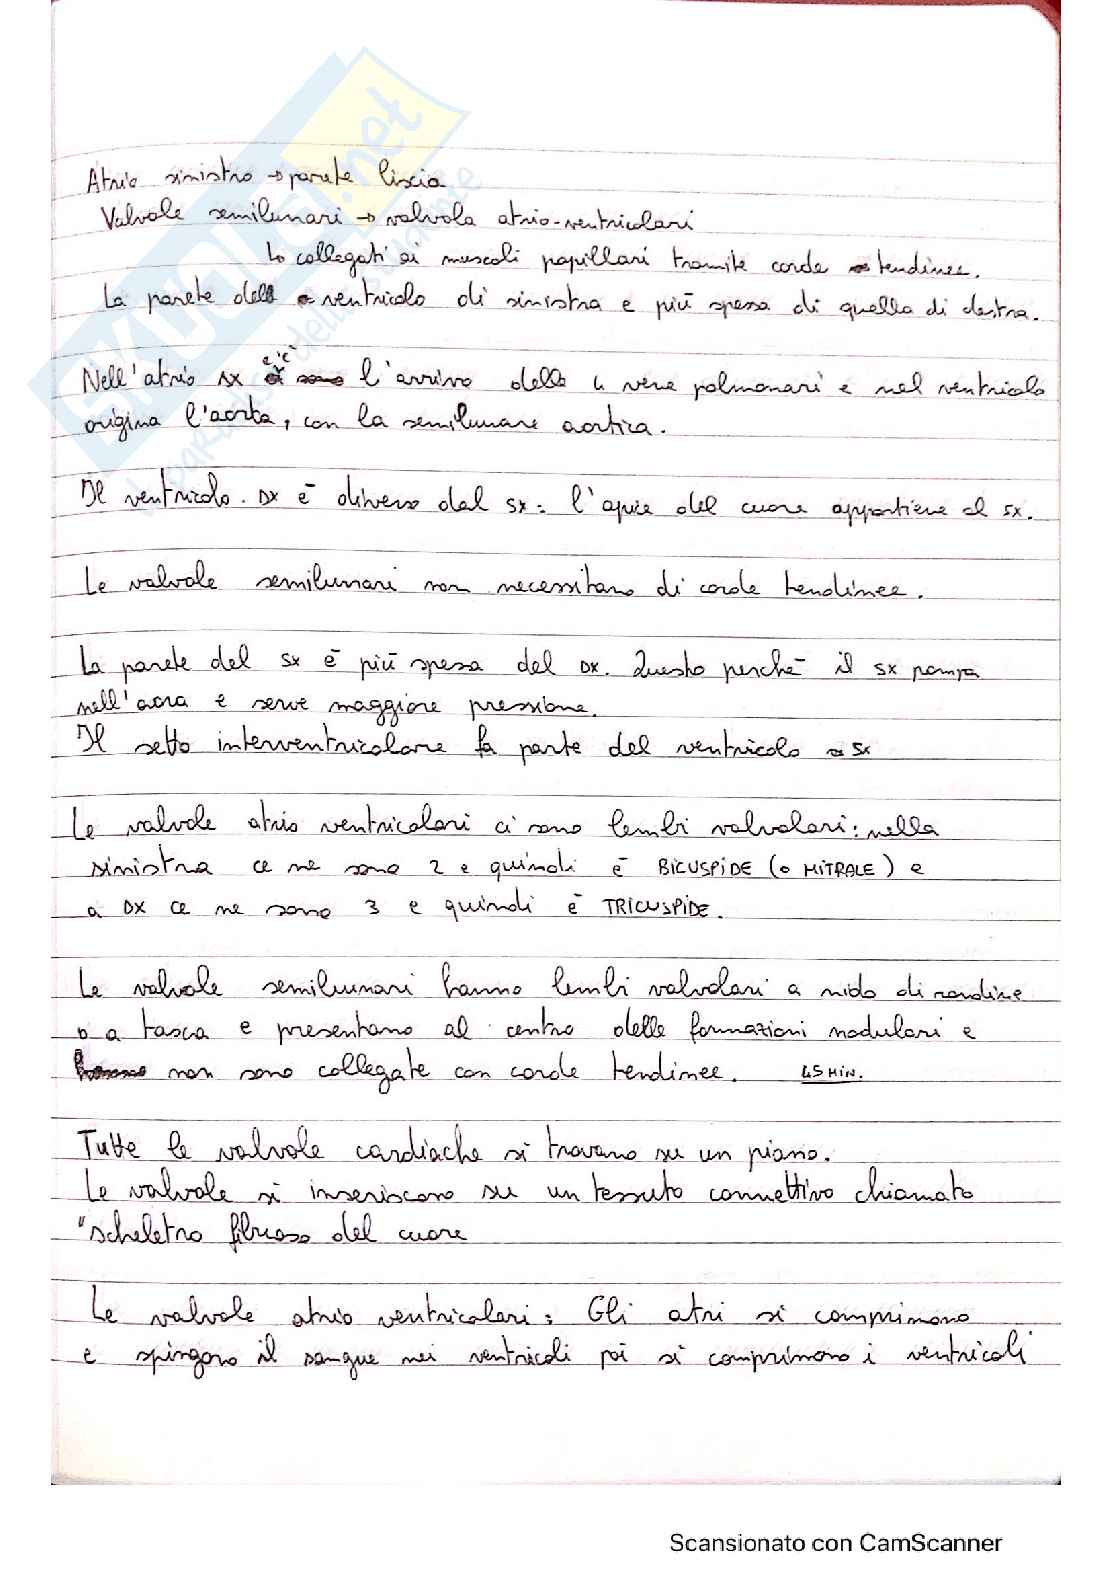 Atrio sinistro → parete liscia
Valvole semilunari → valvola atrio-ventricolari
↳ collegati ai muscoli papillari tramite corde tendinee.
La parete del ventricolo di sinistra e più spessa di quella di destra.
Nell'atrio sx c'è l'arrivo delle 4 vene polmonari e nel ventricolo
origina l'aorta, con la semilunare aortica.
Il ventricolo. DX è diverso dal SX: l'apice del cuore appartiene al SX.
Le valvole semilunari non necessitano di corde tendinee.
La parete del SX è più spessa del DX. Questo perchè il SX pompa
nell' e serve maggiore pressione.
Il setto interventricolare fa parte del ventricolo SX
Le valvole atrio ventricolari ci sono lembi valvolari: nella
sinistra ce ne sono 2 e quindi è BICUSPIDE (o MITRALE) e
a DX ce ne sono 3 e quindi è TRICUSPIDE.
Le valvole semilunari hanno lembi valvolari a nido di rondine
o a tasca e presentano al centro delle formazioni nodulari e
non sono collegate con corde tendinee. 45 MIN.
Tutte le valvole cardiache si trovano su un piano.
Le valvole si inseriscono su un tessuto connettivo chiamato
"scheletro fibroso del cuore
Le valvole atrio ventricolari: Gli atri si comprimono
e spingono il sangue nei ventricoli poi si comprimono i ventricoli
Scansionato con CamScanner
SKUOLA.net